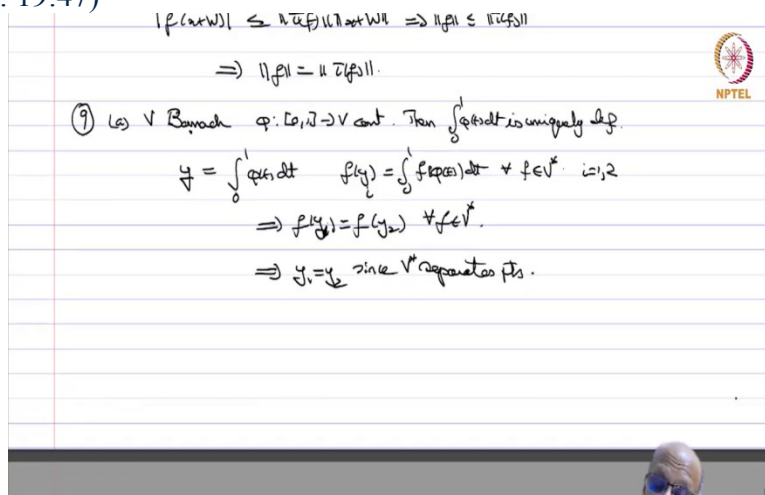 : 19:47)
|f(x+W)| ≤ ‖π(f)‖ ‖x+W‖ ⇒ ‖f‖ ≤ ‖π(f)‖
⇒ ‖f‖ = ‖π(f)‖.
NPTEL
⑨ (a) V Banach φ: [0,1] → V cont. Then ∫₀¹ φ(t)dt is uniquely def.
y = ∫₀¹ φ(t)dt f(yᵢ) = ∫₀¹ f(φ(t))dt ∀ f∈V* i=1,2
⇒ f(y₁) = f(y₂) ∀ f∈V*.
⇒ y₁ = y₂ since V* separates pts.